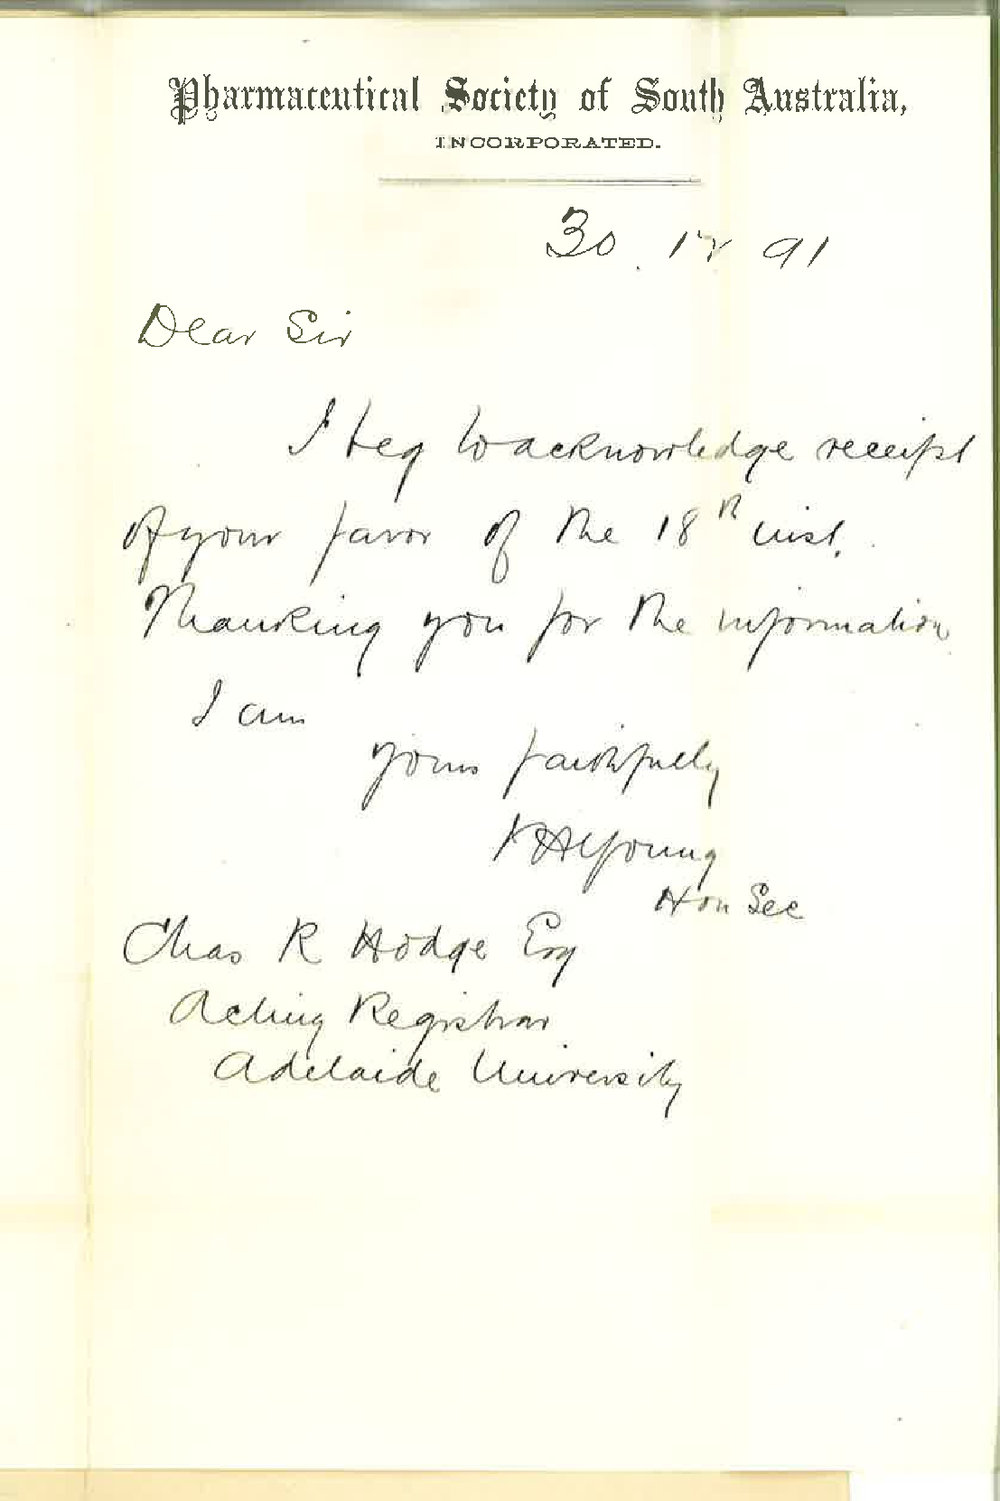 Pharmaceutical Society of South Australia,
INCORPORATED.
30. 12 91
Dear Sir
I beg to acknowledge receipt
of your favor of the 18th inst.
Thanking you for the information
I am
yours faithfully
Young
Hon Sec
Chas R Hodge Esq
Acting Registrar
Adelaide University